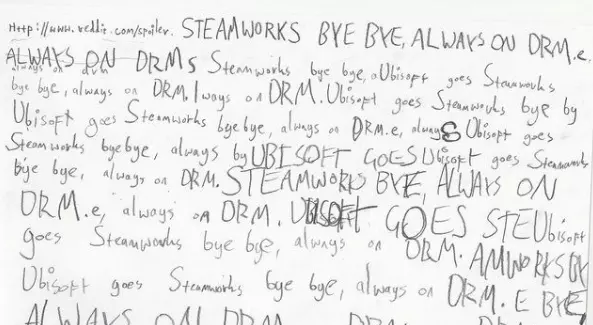 Http://www.reddit.com/spoiler. STEAMWORKS BYE BYE, ALWAYS ON DRM.e,
ALWAYS ON DRMs Steamworks bye bye, aUbisoft goes Steamworks
always on drm
bye bye, always on DRM.lways on DRM.Ubisoft goes Steamworks bye by
Ubisoft goes Steamworks bye bye, always on DRM.e, alwayS Ubisoft goes
Steamworks bye bye, always byUBISOFT GOESUbisoft goes Steamworks
bye bye, always on DRM.STEAMWORKS BYE, ALWAYS ON
DRM.e, always on DRM. UBISOFT GOES STEUbisoft
goes Steamworks bye bye, always on DRM. AMWORKS BY
Ubisoft goes Steamworks bye bye, always on DRM. E BYE,
ALWAYS ON DRM